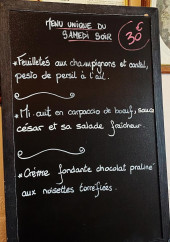 MENU UNIQUE DU
SAMEDI SOIR
30€
*Feuilletés aux champignons et cantal,
pesto de persil à l'ail.
*Mi cuit en carpaccio de bœuf, sauce
césar et sa salade fraîcheur.
*Crème fondante chocolat praliné
aux noisettes torréfiées.